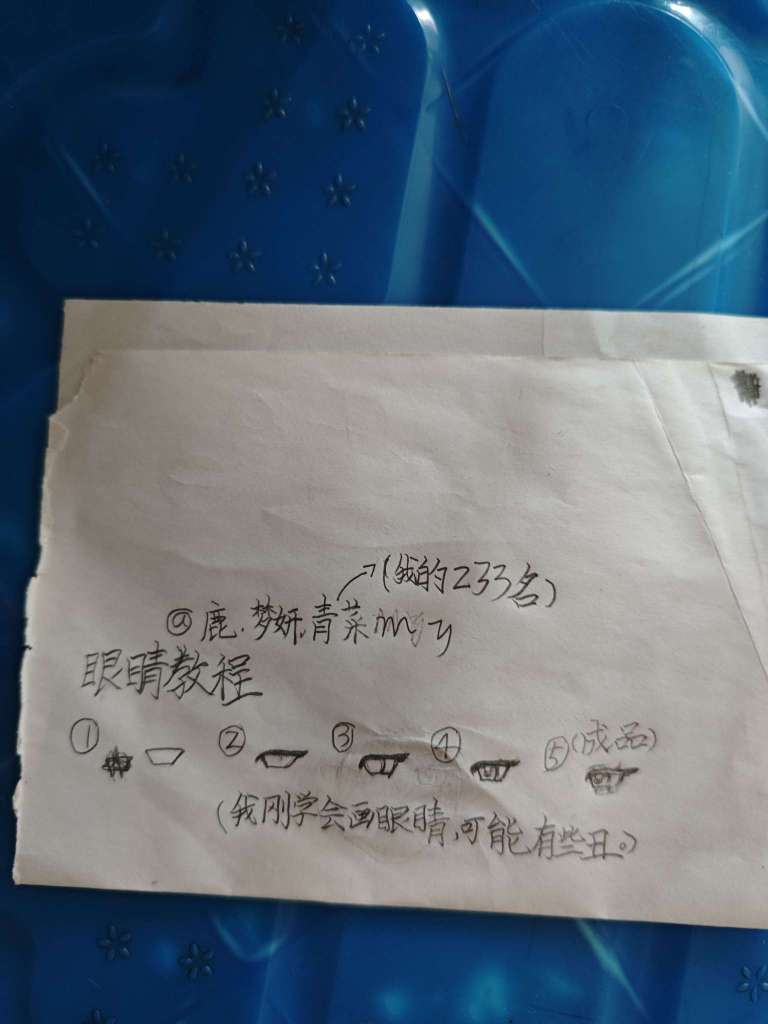 (我的233名)
@鹿.梦妍,青菜my
眼睛教程
① ② ③ ④ ⑤(成品)
(我刚学会画眼睛,可能有些丑。)